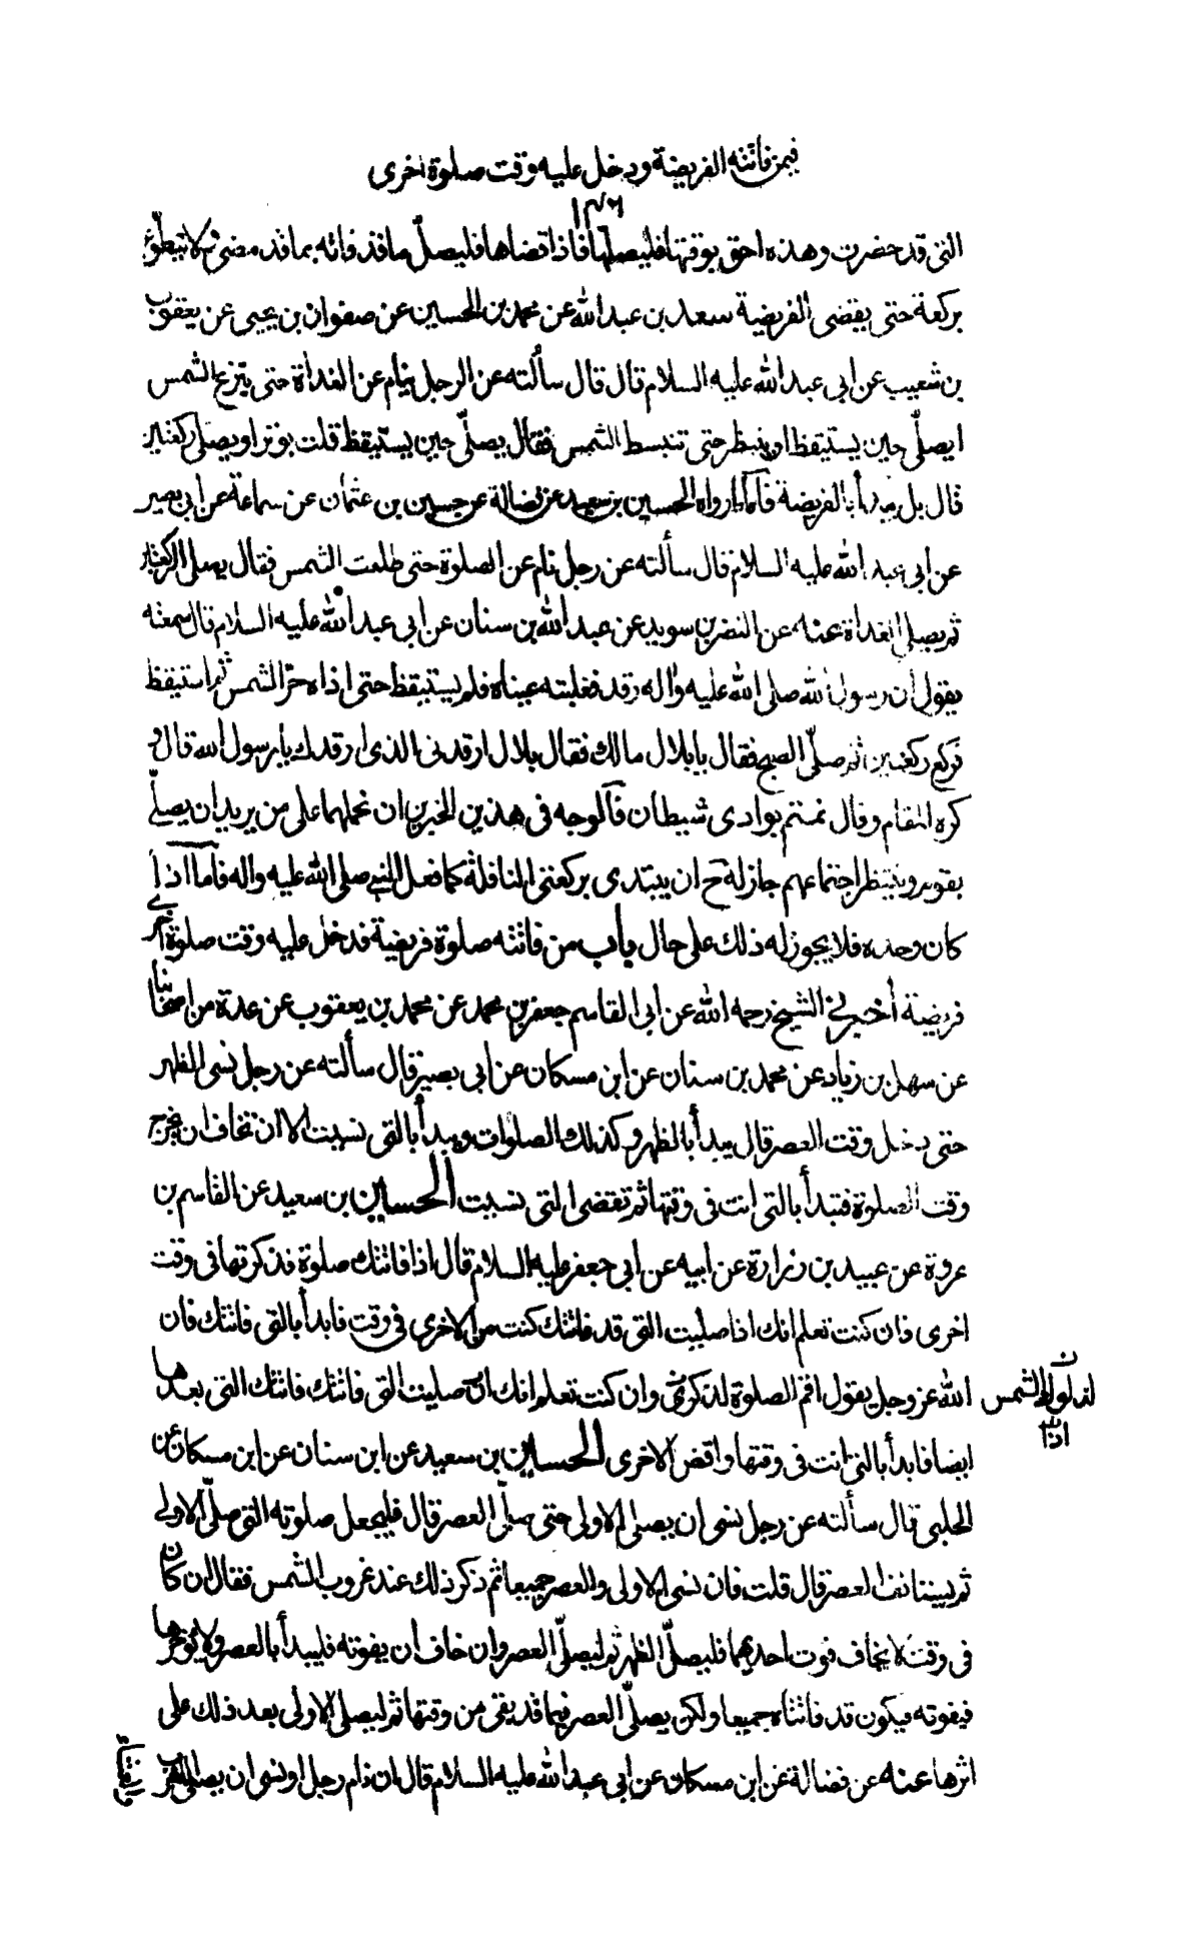 فيمن فاتته الفريضة ودخل عليه وقت صلوة اخرى
١٤٦
التى قد حضرت وهذه احق بوقتها فليصلها فاذا قضاها فليصلّ ما قد فاته بما قد مضى ولا يتطوع
بركعة حتى يقضى الفريضة سعد بن عبد الله عن محمد بن الحسين عن صفوان بن يحيى عن يعقوب
بن شعيب عن ابى عبد الله عليه السلام قال قال سألته عن الرجل ينام عن الغداة حتى يبزغ الشمس
ايصلّى حين يستيقظ او ينتظر حتى تنبسط الشمس فقال يصلّى حين يستيقظ قلت يوتر او يصلى ركعتين
قال بل يبدأ بالفريضة فأما ما رواه الحسين بن سعيد عن فضالة عن حسين بن عثمان عن سماعة عن ابى بصير
عن ابى عبد الله عليه السلام قال سألته عن رجل نام عن الصلوة حتى طلعت الشمس فقال يصلى الركعتين
ثم يصلى الغداة عنه عن النضر بن سويد عن عبد الله بن سنان عن ابى عبد الله عليه السلام قال سمعته
يقول ان رسول الله صلى الله عليه واله رقد فغلبته عيناه فلم يستيقظ حتى اذاه حرّ الشمس ثم استيقظ
فركع ركعتين ثم صلّى الصبح فقال يا بلال مالك فقال بلال ارقدنى الذى ارقدك يا رسول الله قال و
كره المقام وقال نمتم بوادى شيطان فآلوجه فى هذين الخبرين ان نحملهما على من يريد ان يصلّى
بقوم وينتظر اجتماعهم جاز له ح ان يبتدى بركعتى النافلة كما فعل النبى صلى الله عليه واله فأما اذا
كان وحده فلا يجوز له ذلك على حال باب من فاتته صلوة فريضة فدخل عليه وقت صلوة اخرى
فريضة أخبرنى الشيخ رحمه الله عن ابى القاسم جعفر بن محمد عن محمد بن يعقوب عن عدة من اصحابنا
عن سهل بن زياد عن محمد بن سنان عن ابن مسكان عن ابى بصير قال سألته عن رجل نسى الظهر
حتى دخل وقت العصر قال يبدأ بالظهر وكذلك الصلوات ويبدأ بالتى نسيت الا ان تخاف ان يخرج
وقت الصلوة فتبدأ بالتى انت فى وقتها ثم تقضى التى نسيت الحسين بن سعيد عن القاسم بن
عروة عن عبيد بن زرارة عن ابيه عن ابى جعفر عليه السلام قال اذا فاتتك صلوة فذكرتها فى وقت
اخرى فان كنت تعلم انك اذا صليت التى قد فاتتك كنت من الاخرى فى وقت فابدأ بالتى فاتتك فان
الله عز وجل يقول اقم الصلوة لذكرى وان كنت تعلم انك ان صليت التى فاتتك فاتتك التى بعدها
لدلوك الشمس
اذا
ايضا فابدأ بالتى انت فى وقتها واقض الاخرى الحسين بن سعيد عن ابن سنان عن ابن مسكان عن
الحلبى قال سألته عن رجل نسى ان يصلى الاولى حتى صلّى العصر قال فليجعل صلوته التى صلّى الاولى
ثم يستانف العصر قال قلت فان نسى الاولى والعصر جميعا ثم ذكر ذلك عند غروب الشمس فقال ان كان
فى وقت لا يخاف فوت احديهما فليصلّ الظهر ثم ليصلّ العصر وان خاف ان يفوته فليبدأ بالعصر ولا يؤخرها
فيفوته فيكون قد فاتتاه جميعا ولكن يصلّى العصر فيما قد بقى من وقتها ثم ليصلى الاولى بعد ذلك على
اثرها عنه عن فضالة عن ابن مسكان عن ابى عبد الله عليه السلام قال ان نام رجل او نسى ان يصلى المغرب